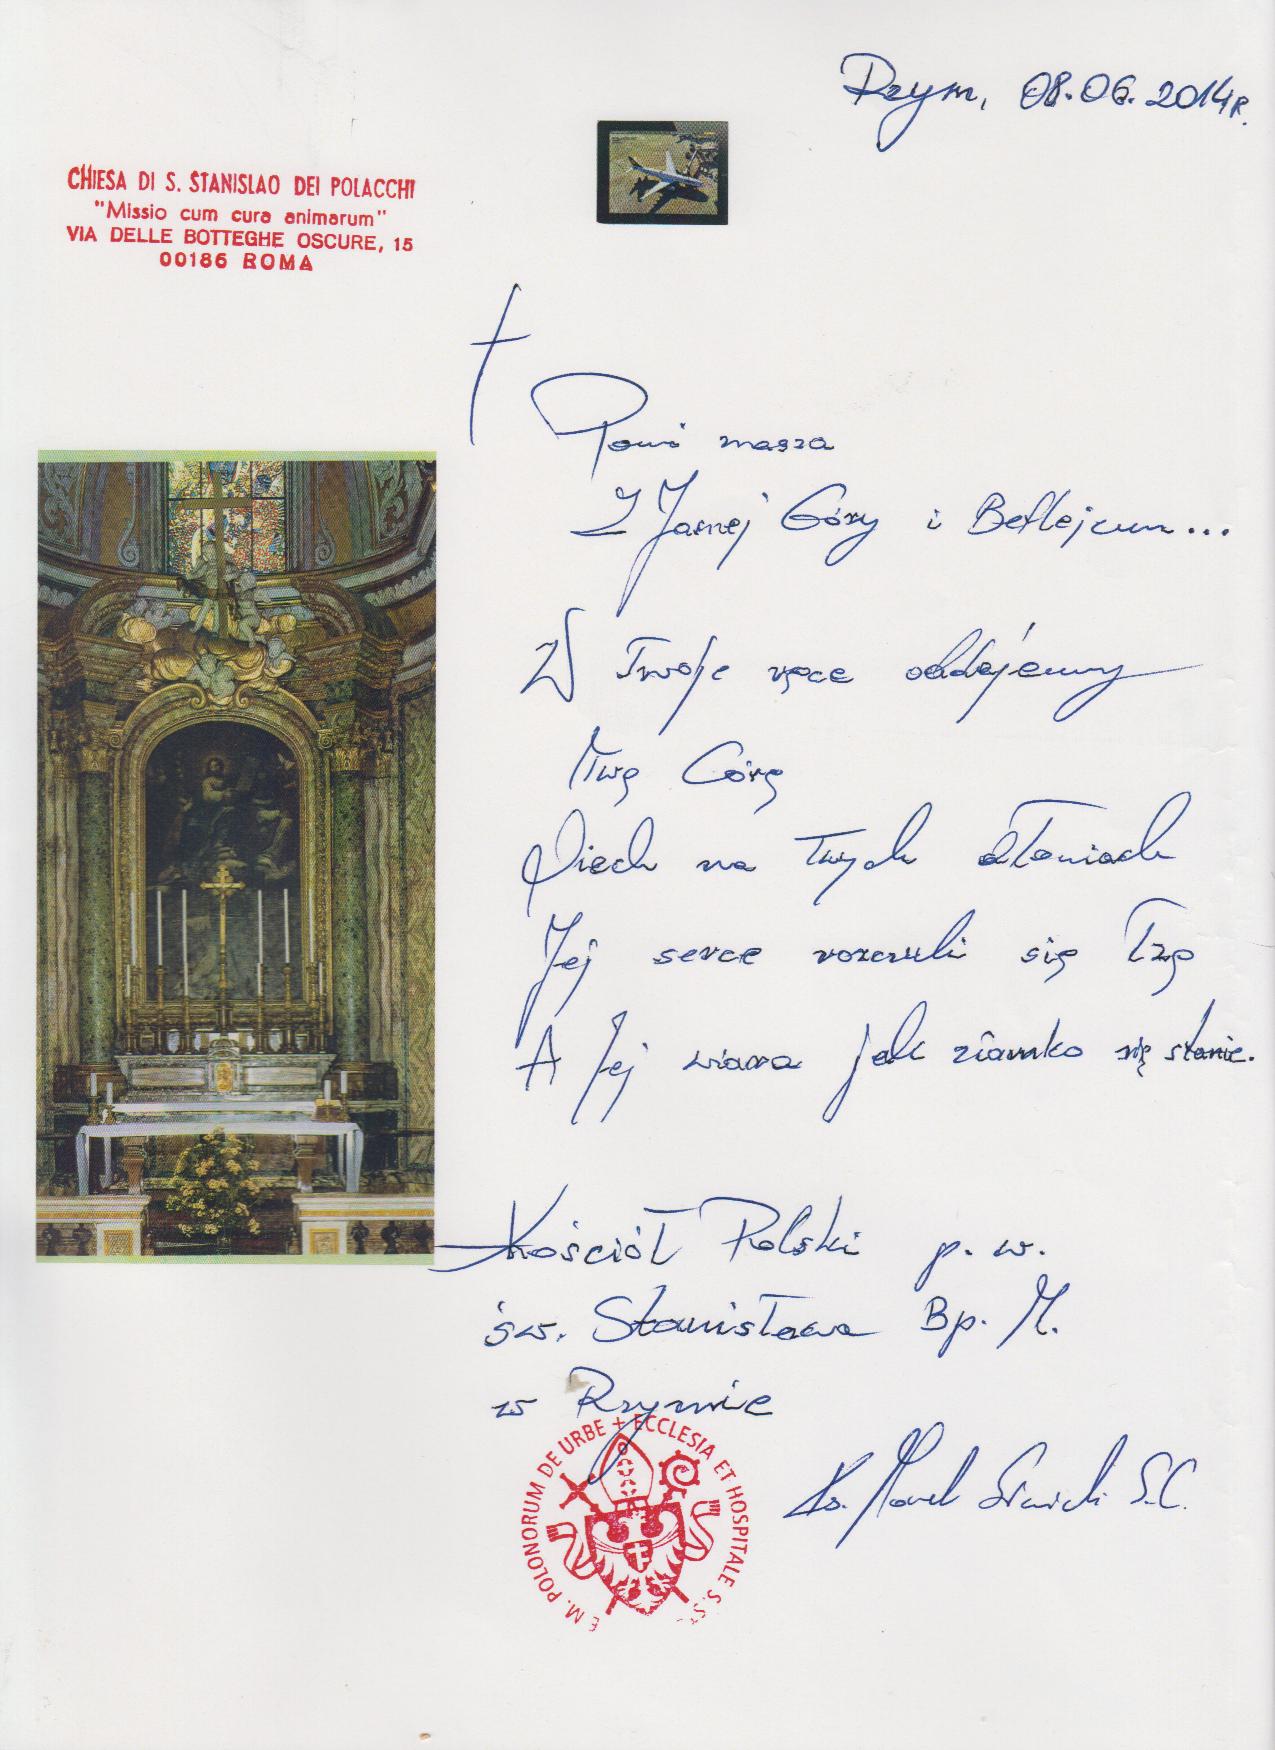 Rzym, 08.06.2014r.
CHIESA DI S. STANISLAO DEI POLACCHI
"Missio cum cura animarum"
VIA DELLE BOTTEGHE OSCURE, 15
00186 ROMA
Pani nasza
Z Jasnej Góry i Betlejem...
W Twoje ręce oddajemy
Twą Córę
Niech na Twych dłoniach
Jej serce rozczuli się łzą
A Jej wiara jak ziarnko się stanie.
Kościół Polski p.w.
św. Stanisława Bp. M.
w Rzymie
E M. POLONORUM DE URBE + ECCLESIA ET HOSPITALE S. ST
Ks. S.C.